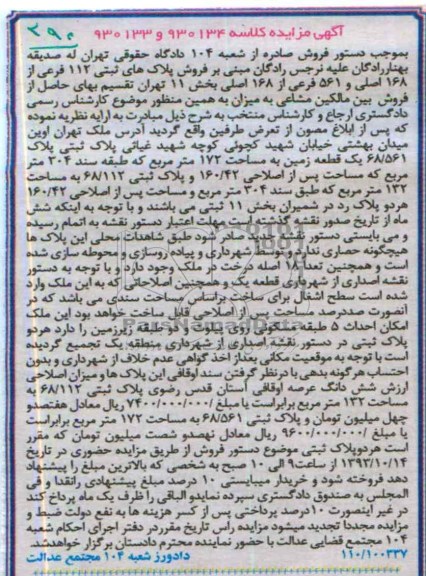 ۳۹۰
آگهی مزایده کلاسه ۹۳۰۱۳۴ و ۹۳۰۱۳۳
بموجب دستور فروش صادره از شعبه ۱۰۴ دادگاه حقوقی تهران له صدیقه
بهناررادگان علیه نرجس رادگان مبنی بر فروش پلاک های ثبتی ۱۱۲ فرعی از
۱۶۸ اصلی و ۵۶۱ فرعی از ۱۶۸ اصلی بخش ۱۱ تهران تقسیم بهای حاصل از
فروش بین مالکین مشاعی به میزان به همین منظور موضوع کارشناس رسمی
دادگستری ارجاع و کارشناس منتخب به شرح ذیل مبادرت به ارایه نظریه نموده
که پس از ابلاغ مصون از تعرض طرفین واقع گردید آدرس ملک تهران اوین
میدان بهشتی خیابان شهید کچوئی کوچه شهید غیاثی پلاک ثبتی پلاک
۶۸/۵۶۱ یک قطعه زمین به مساحت ۱۷۲ متر مربع که طبقه سند ۳۰۴ متر
مربع که مساحت پس از اصلاحی ۱۶۰/۴۲ و پلاک ثبتی ۶۸/۱۱۲ به مساحت
۱۳۲ متر مربع که طبق سند ۳۰۴ متر مربع و مساحت پس از اصلاحی ۱۶۰/۴۲
هردو پلاک رد در شمیران بخش ۱۱ ثبتی می باشند و با توجه به اینکه شش
ماه از تاریخ صدور نقشه گذشته است مهلت اعتبار دستور نقشه به اتمام رسیده
و می بایستی دستور نقشه جدید صادر شود طبق شاهدات محلی این پلاک ها
هیچگونه حصاری ندارد و توسط شهرداری و پیاده روسازی و محوطه سازی شده
است و همچنین تعداد ۱۸ اصله درخت در ملک وجود دارد و با توجه به دستور
نقشه اصداری از شهرداری قطعه یک و همچنین اصلاحاتی که به این ملک وارد
شده است سطح اشغال برای ساخت براساس مساحت سندی می باشد که در
آنصورت صددرصد مساحت پس از اصلاحی قابل ساخت خواهد بود این ملک
امکان احداث ۵ طبقه مسکونی روی پیلوت و دو طبقه زیرزمین را دارد هردو
پلاک ثبتی در دستور نقشه اصداری از شهرداری منطقه یک تجمیع گردیده
است با توجه به موقعیت مکانی بعداز اخذ گواهی عدم خلاف از شهرداری و بدون
احتساب هرگونه بدهی با درنظر گرفتن سند اوقافی این پلاک ها و میزان اصلاحی
ارزش شش دانگ عرصه اوقافی آستان قدس رضوی پلاک ثبتی ۶۸/۱۱۲ به
مساحت ۱۳۲ متر مربع برابراست با مبلغ ۷۴۰۰/۰۰۰/۰۰۰ ریال معادل هفتصدو
چهل میلیون تومان و پلاک ثبتی ۶۸/۵۶۱ به مساحت ۱۷۲ متر مربع برابراست
با مبلغ ۹۶۰۰/۰۰۰/۰۰۰ ریال معادل نهصدو شصت میلیون تومان که مقرر
است هردوپلاک ثبتی موضوع دستور فروش از طریق مزایده حضوری در تاریخ
۱۳۹۳/۱۰/۱۴ از ساعت۹ الی ۱۰ صبح به شخصی که بالاترین مبلغ را پیشنهاد
دهد فروخته شود و خریدار میبایستی ۱۰ درصد مبلغ پیشنهادی رانقدا و فی
المجلس به صندوق دادگستری سپرده نمایدو الباقی را ظرف یک ماه پرداخ کند
در غیر اینصورت ۱۰درصد پرداختی پس از کسر هزینه ها به نفع دولت ضبط و
مزایده مجددا تجدید میشود مزایده راس تاریخ مقرردر دفتر اجرای احکام شعبه
۱۰۴ مجتمع قضایی عدالت با حضور نماینده محترم دادستان برگزار خواهدشد.
۱۱۰/۱۰۰۳۳۷ دادورز شعبه ۱۰۴ مجتمع عدالت